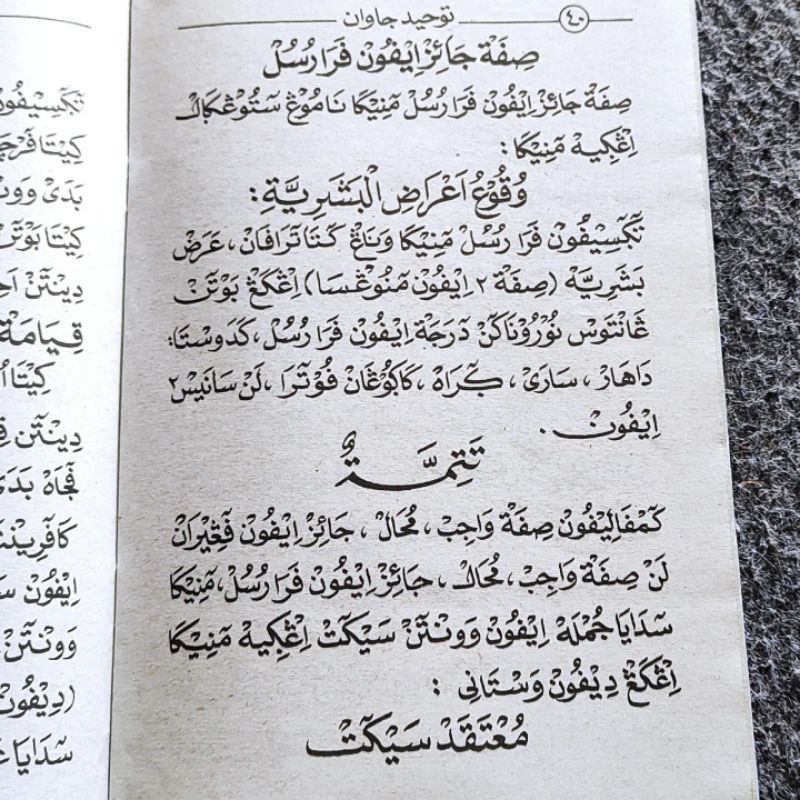 توحيد جاوان
٤٠
صِفَةْ جَائِزْ اِيْفُوْنْ فَرَا رُسُلْ
صِفَةْ جَائِزْ اِيْفُوْنْ فَرَا رُسُلْ مَنِيْكَا نَامُوْڠْ سَتُوْڠْكَالْ
اِڠْكِيْهْ مَنِيْكَا :
وُقُوْعُ اَعْرَاضِ الْبَشَرِيَّةِ :
تَكَسِيْفُوْنْ فَرَا رُسُلْ مَنِيْكَا وَنَاڠْ كَتَاتَرَافَانْ، عَرَضْ
بَشَرِيَّهْ (صِفَةْ ٢ اِيْفُوْنْ مَنُوْڠْسَا) اِڠْكَڠْ بَوْتَنْ
غَانْتَوْسْ نُوْرُوْنَاكَنْ دَرَجَةْ اِيْفُوْنْ فَرَا رُسُلْ، كَدَوْسْتَا:
دَاهَارْ ، سَارَىْ ، كَرَاهْ ، كَاكَوْڠَانْ فُوْتْرَا ، لَنْ سَانَيْسْ ٢
اِيْفُوْنْ .
تَتِمَّةٌ
كَمْفَالِيْفُوْنْ صِفَةْ وَاجِبْ ، مُحَالْ ، جَائِزْ اِيْفُوْنْ فَڠَيْرَانْ
لَنْ صِفَةْ وَاجِبْ ، مُحَالْ ، جَائِزْ اِيْفُوْنْ فَرَا رُسُلْ، مَنِيْكَا
سَدَايَا جُمْلَهْ اِيْفُوْنْ وَوْنْتَنْ سَيْكَتْ اِڠْكِيْهْ مَنِيْكَا
اِڠْكَڠْ دِيْفُوْنْ وَسْتَانِى :
مُعْتَقَدْ سَيْكَتْ